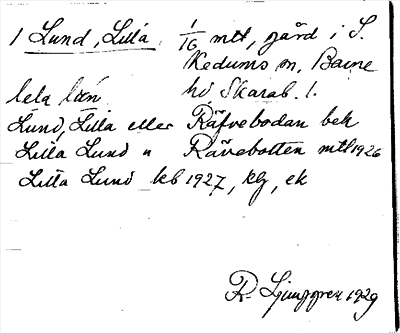 1 Lund, Lilla 1/16 mtl, gård i S.
Kedums sn, Barne
hela länn hd Skarab. l.
Lund, Lilla eller Räfvebodan beb
Lilla Lund " Rävebotten mtl 1926
Lilla Lund kb 1927, kg, ek
R. Ljunggren 1929